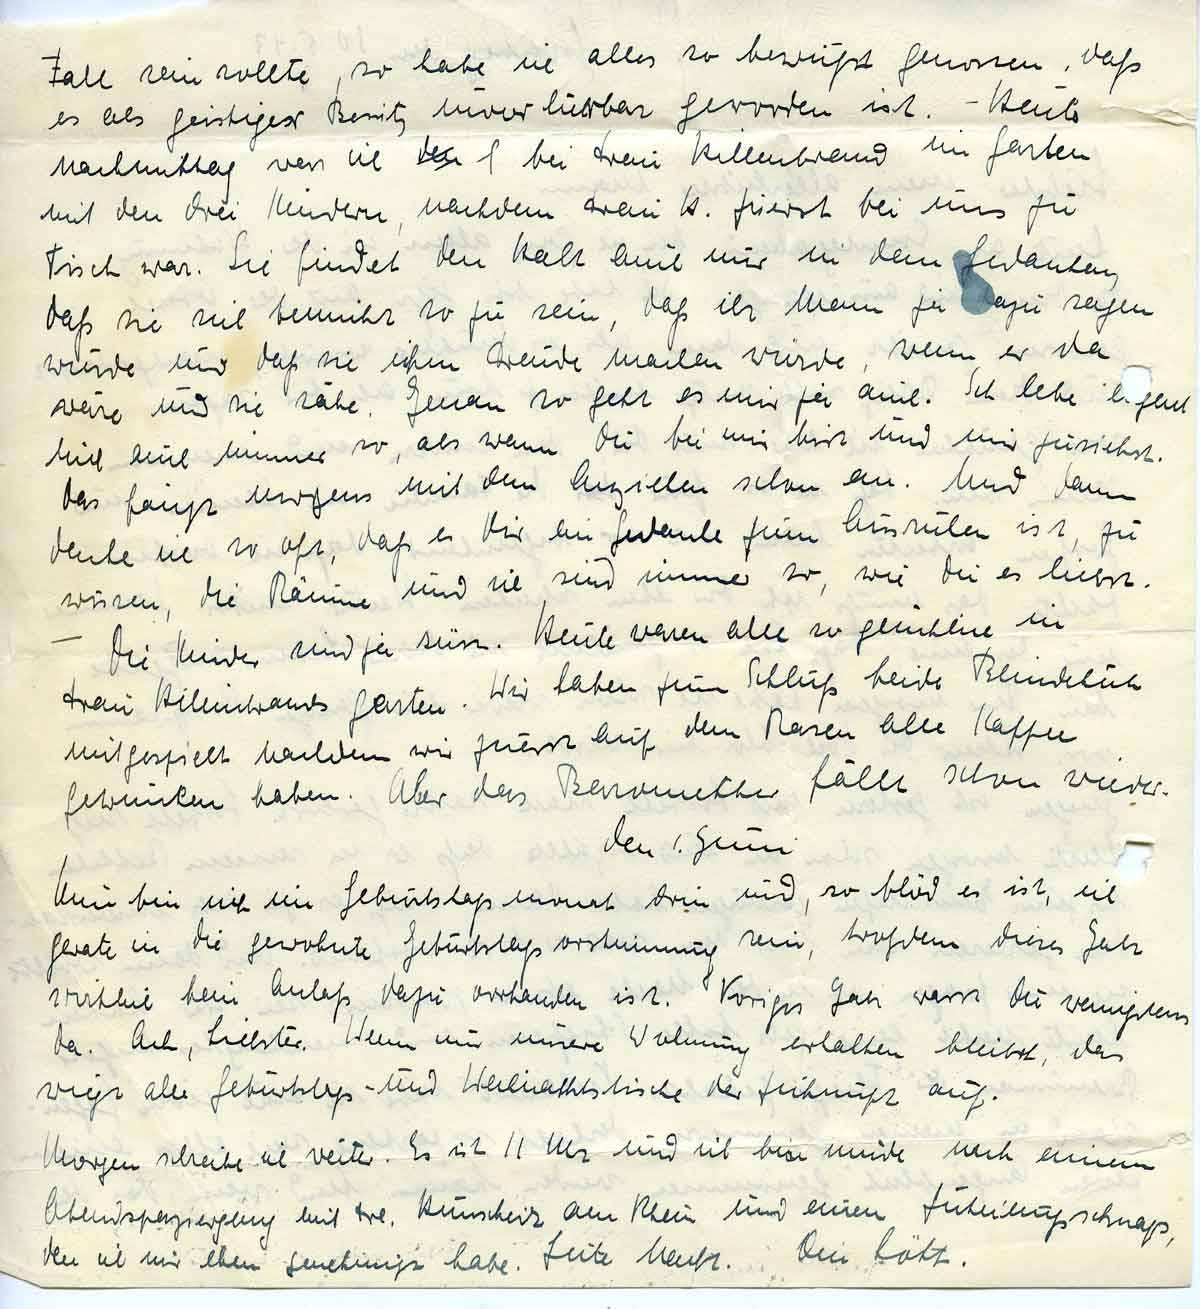 Fall sein sollte, so habe ich alles so bewußt genossen, daß
es als geistiger Besitz unverlierbar geworden ist. – Heute
nachmittag war ich bei Frau Hillenbrand im Garten
mit den drei Kindern, nachdem Frau H. zuerst bei uns zu
Tisch war. Sie findet den Halt auch nur in dem Gedanken,
daß sie sich bemüht so zu sein, daß ihr Mann ja dazu sagen
würde und daß sie ihm Freude machen würde, wenn er da
wäre und sie sähe. Genau so geht es mir ja auch. Ich lebe eigent
lich auch immer so, als wenn du bei mir bist und mir zusiehst.
Das fängt morgens mit dem Anziehen schon an. Und dann
denke ich so oft, daß es dir ein Gedanke zum Ausruhen ist, zu
wissen, die Räume und ich sind immer so, wie du es liebst.
– Die Kinder sind ja süss. Heute waren alle so glücklich in
Frau Hillenbrands Garten. Wir haben zum Schluß beide Blindekuh
mitgespielt nachdem wir zuerst auf dem Rasen alle Kaffee
getrunken haben. Aber das Barometer fällt schon wieder.
den 1. Juni
Nun bin ich im Geburtstagsmonat drin und, so blöd es ist, ich
gerate in die gewohnte Geburtstagsvorstimmung rein, trotzdem dieses Jahr
wirklich kein Anlaß dazu vorhanden ist. Voriges Jahr warst du wenigstens
da. Ach, Liebster. Wenn nur unsere Wohnung erhalten bleibt, das
wiegt alle Geburtstags- und Weihnachtstische der Zukunft auf.
Morgen schreibe ich weiter. Es ist 11 Uhr und ich bin müde nach einem
Abendspaziergang mit Frl. am Rhein und einem
den ich mir eben genehmigt habe. Gute Nacht. Dein